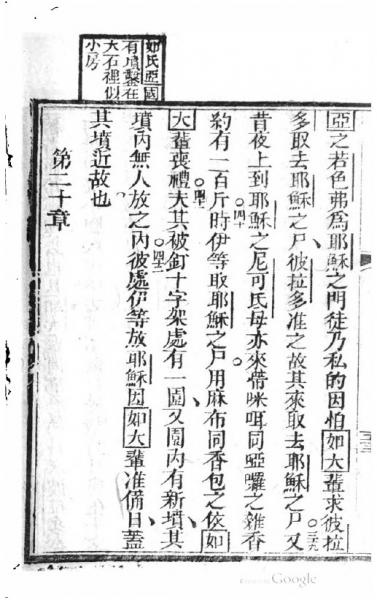 如氏亞國
有墳鑿在
大石裡似
小房
亞之若色弗爲耶穌之門徒乃私的因怕如大輩求彼拉
多取去耶穌之尸彼拉多准之故其來取去耶穌之尸又三十九
昔夜上到耶穌之尼可氏母亦來帶咪咡同啞囉之雜香
約有一百斤時伊等取耶穌之尸用麻布同香包之依如
大輩喪禮夫其被釘十字架處有一園又園內有新墳其
墳內無人放之內彼處伊等放耶穌因如大輩准備日蓋
其墳近故也
第二十章
Google